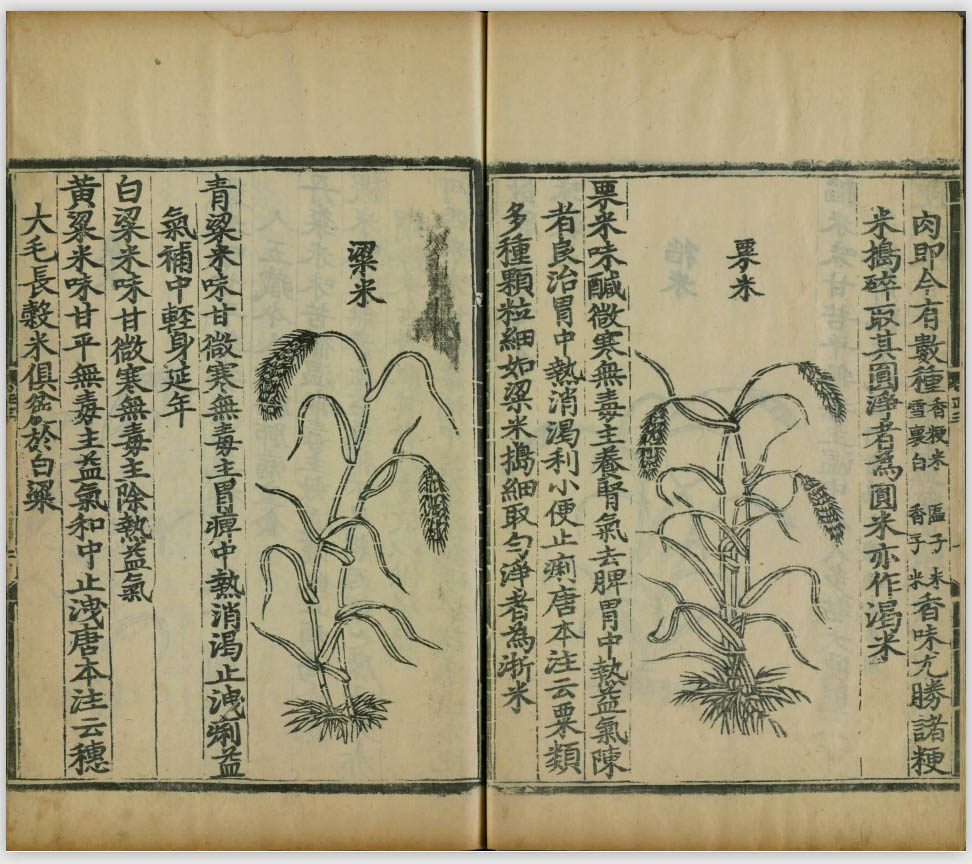 肉即今有數種香粳米 匾子米雪裏白 香子米香味尤勝諸粳
米搗碎取其圓淨者為圓米亦作渴米
粟米
粟米味鹹微寒無毒主養腎氣去脾胃中熱益氣陳
者良治胃中熱消渴利小便止痢唐本注云粟類
多種顆粒細如粱米搗細取勻淨者為淅米
粱米
青粱米味甘微寒無毒主胃痺中熱消渴止洩痢益
氣補中輕身延年
白粱米味甘微寒無毒主除熱益氣
黃粱米味甘平無毒主益氣和中止洩唐本注云穗
大毛長穀米俱麄於白粱